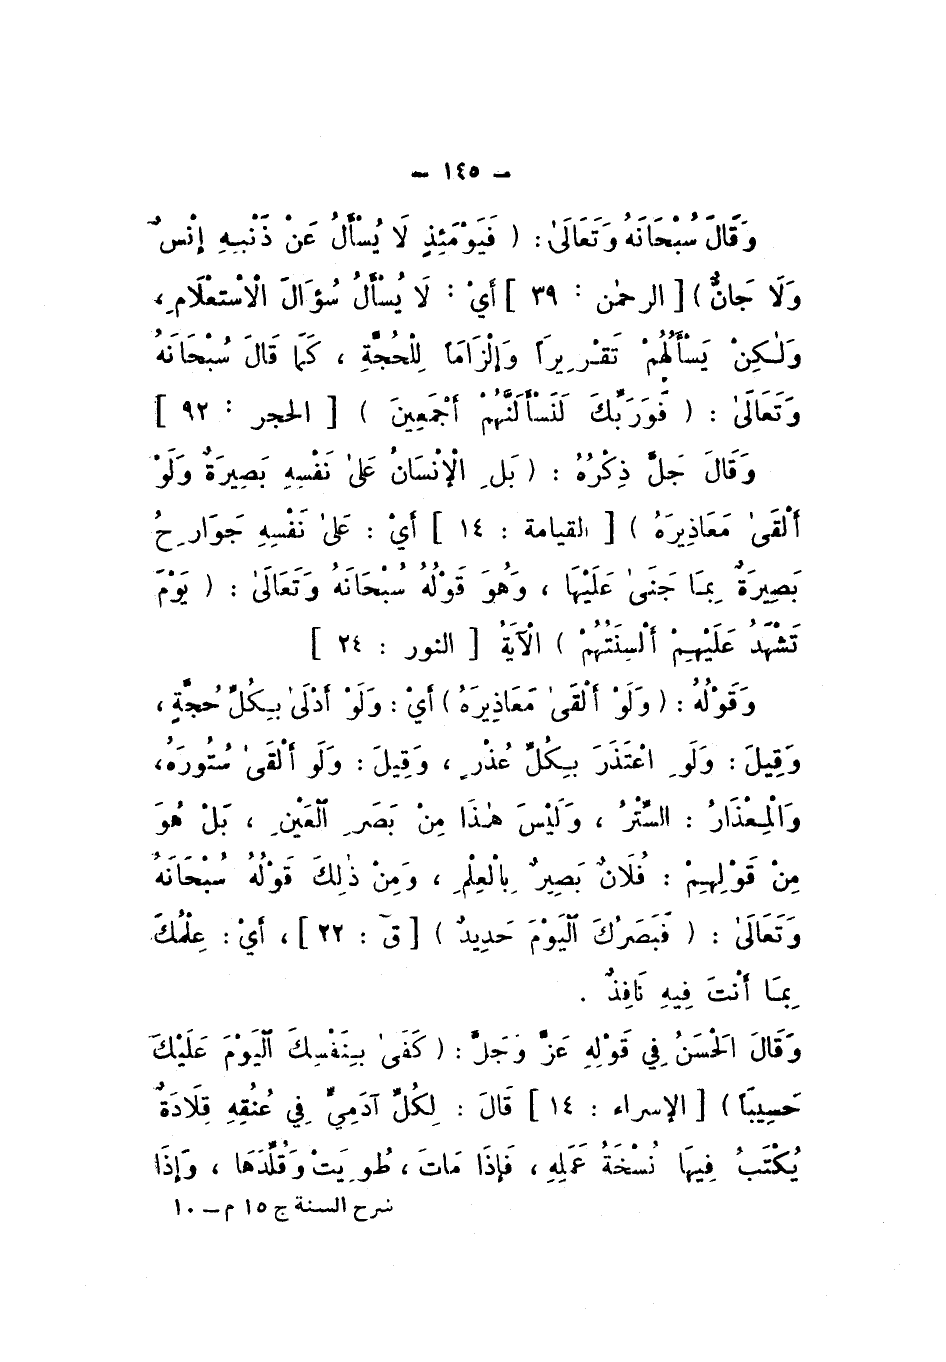 – ١٤٥ –
وَقَالَ سُبْحَانَهُ وَتَعَالَىٰ : ( فَيَوْمَئِذٍ لَا يُسْأَلُ عَنْ ذَنْبِهِ إِنْسٌ
وَلَا جَانٌّ ) [ الرحمٰن : ٣٩ ] أَيْ : لَا يُسْأَلُ سُؤَالَ الْاسْتعْلَامِ ،
وَلٰكِنْ يَسْأَلُهُمْ تَقْرِيرَاً وَإِلْزَامَاً لِلْحُجَّةِ ، كَمَا قَالَ سُبْحَانَهُ
وَتَعَالَىٰ : ( فَوَرَبِّكَ لَنَسْأَلَنَّهُمْ أَجْمَعِينَ ) [ الحجر : ٩٢ ]
وَقَالَ جَلَّ ذِكْرُهُ : ( بَلِ الْإِنْسَانُ عَلىٰ نَفْسِهِ بَصِيرَةٌ وَلَوْ
أَلْقَىٰ مَعَاذِيرَهُ ) [ القيامة : ١٤ ] أَيْ : عَلىٰ نَفْسِهِ جَوَارِحُ
بَصِيرَةٌ بِمَا جَنَىٰ عَلَيْهَا ، وَهُوَ قَوْلُهُ سُبْحَانَهُ وَتَعَالَىٰ : ( يَوْمَ
تَشْهَدُ عَلَيْهِمْ أَلْسِنَتُهُمْ ) الْآيَةُ [ النور : ٢٤ ]
وَقَوْلُهُ : ( وَلَوْ أَلْقَىٰ مَعَاذِيرَهُ ) أَيْ : وَلَوْ أَدْلَىٰ بِكُلِّ حُجَّةٍ ،
وَقِيلَ : وَلَوِ اعْتَذَرَ بِكُلِّ عُذْرٍ ، وَقِيلَ : وَلَو أَلْقَىٰ سُتُورَهُ ،
وَالْمِعْذَارُ : السِّتْرُ ، وَلَيْسَ هٰذَا مِنْ بَصَرِ الْعَيْنِ ، بَلْ هُوَ
مِنْ قَوْلِهِمْ : فُلَانٌ بَصِيرٌ بِالْعِلْمِ ، وَمِنْ ذٰلِكَ قَوْلُهُ سُبْحَانَهُ
وَتَعَالَىٰ : ( فَبَصَرُكَ الْيَوْمَ حَدِيدٌ ) [ قۤ : ٢٢ ] ، أَيْ : عِلْمُكَ
بِمَا أَنْتَ فِيهِ نَافِذٌ .
وَقَالَ الْحَسَنُ فِي قَوْلِهِ عَزَّ وَجَلَّ : ( كَفَىٰ بِنَفْسِكَ الْيَوْمَ عَلَيْكَ
حَسِيبًا ) [ الإسراء : ١٤ ] قَالَ : لِكُلِّ آدَمِيٍّ فِي عُنُقِهِ قِلَادَةٌ
يُكْتَبُ فِيهَا نُسْخَةُ عَمَلِهِ ، فَإِذَا مَاتَ ، طُوِيَتْ وَقُلِّدَهَا ، وَإِذَا
شرح السنة ج ١٥ م – ١٠